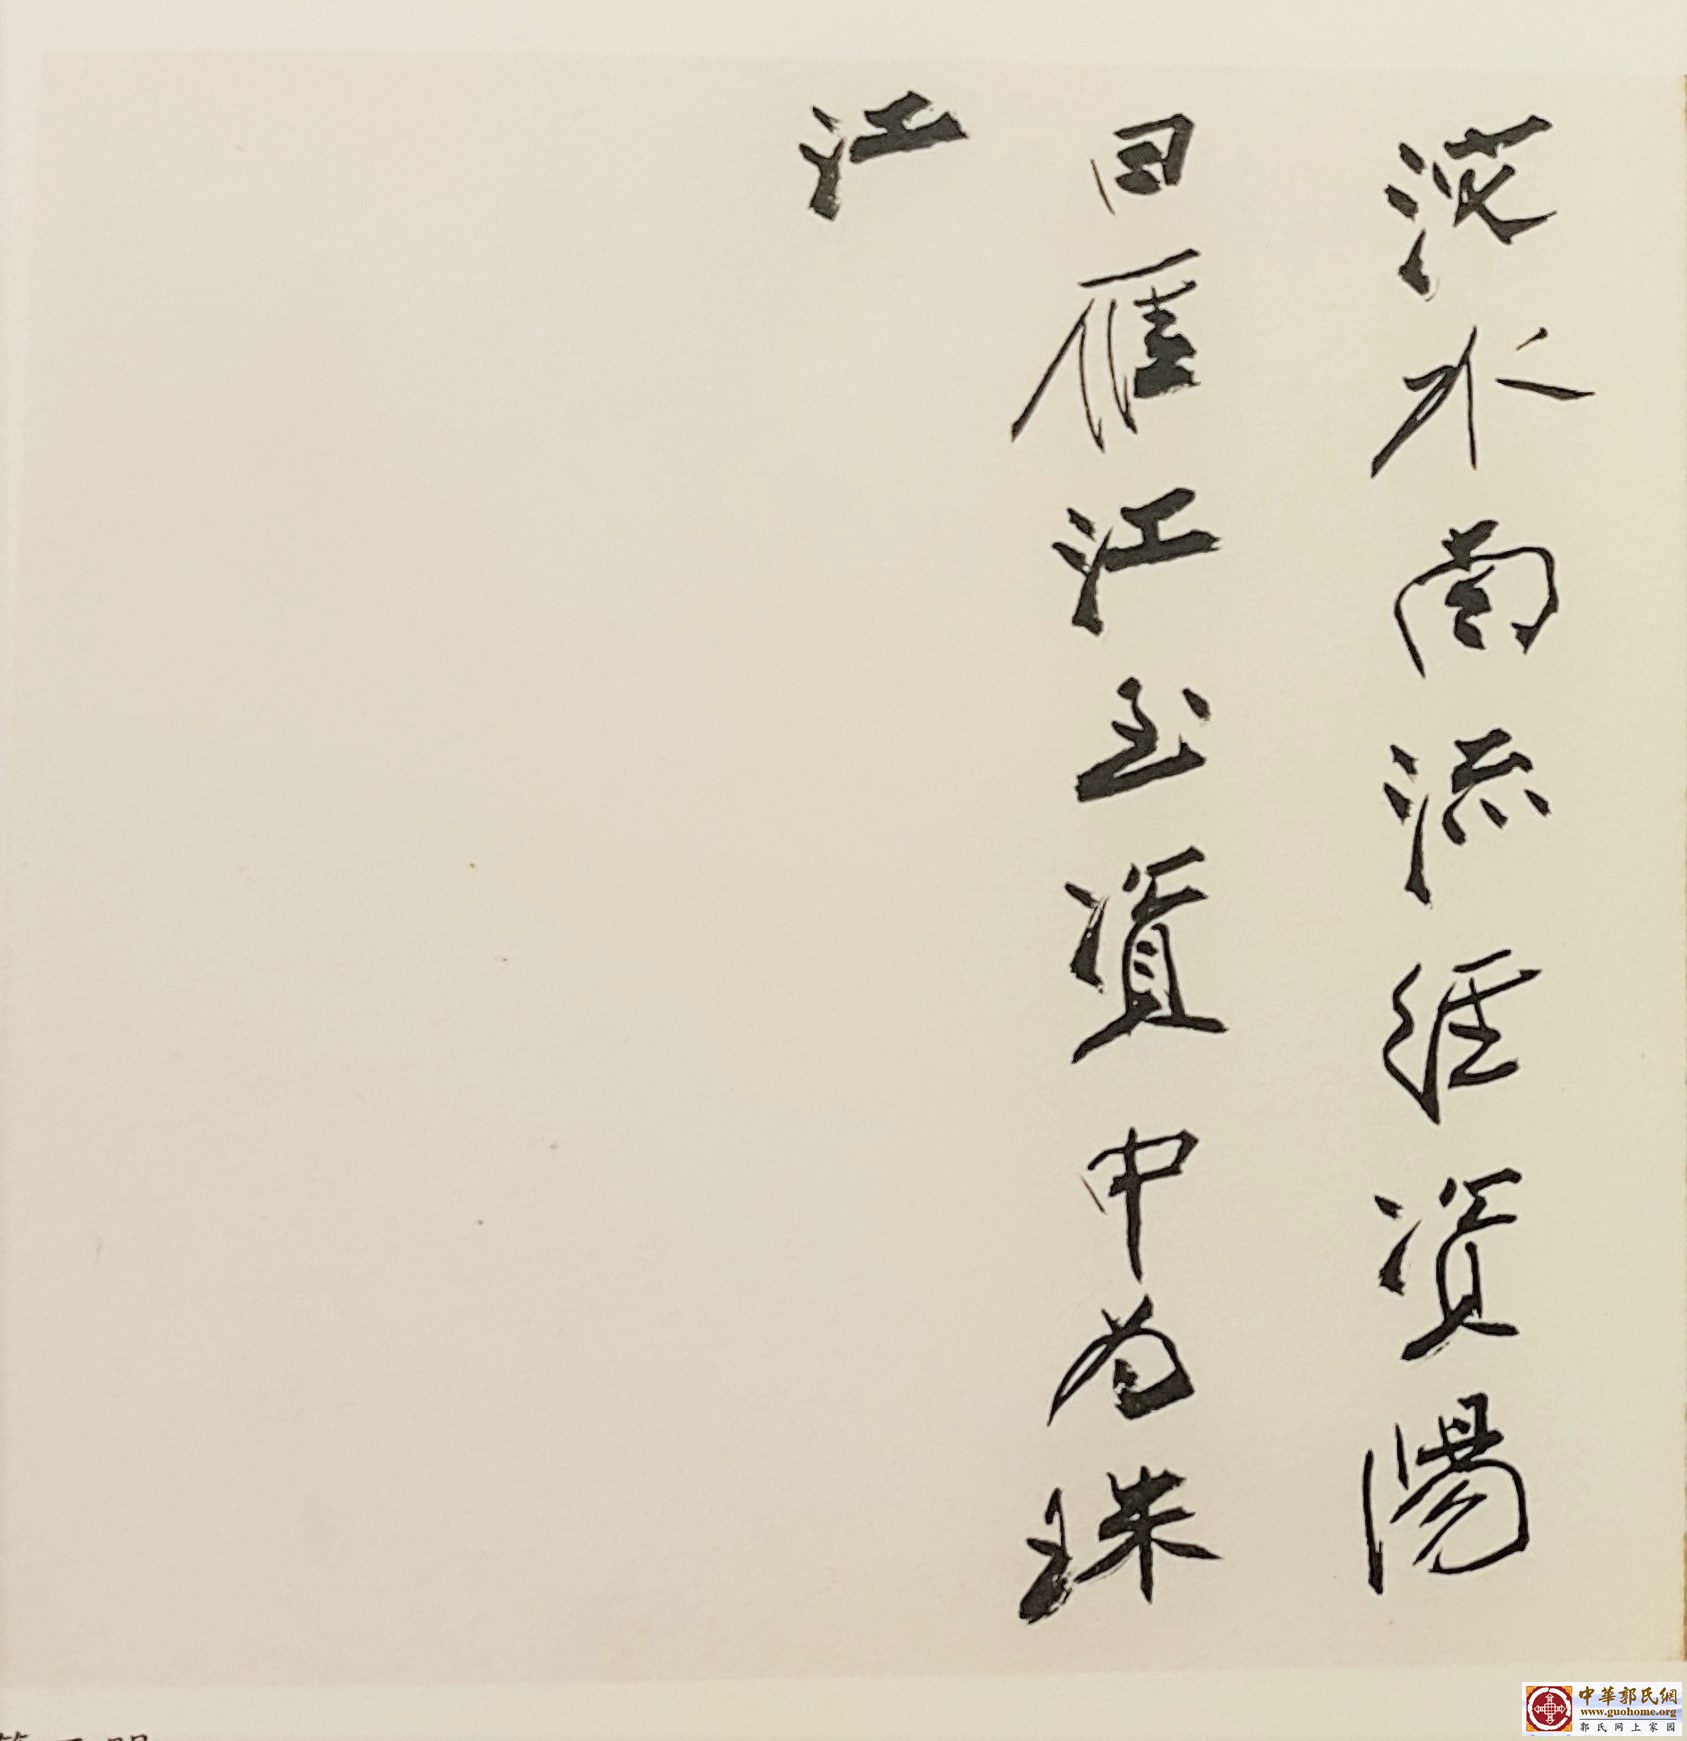 沱水南流經資陽
曰雁江至資中为珠
江
中華郭氏網
www.guohome.org
郭氏网上家园